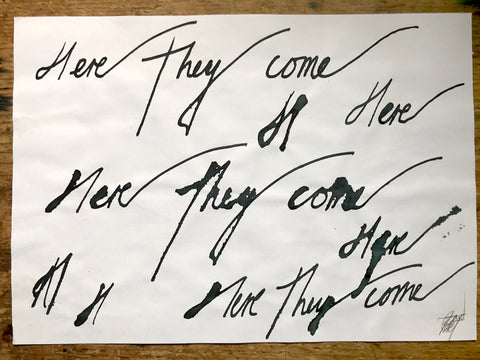 Here They come
H Here
Here They come
Here
H H Here They come